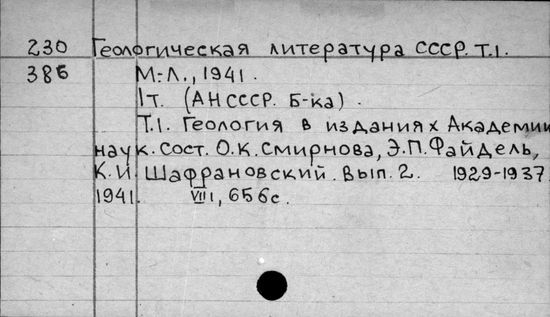 230 Геологическая литература СССР. Т.1.
386 М.-Л., 1941.
1т. (АН СССР. Б-ка).
Т.1. Геология в изданиях Академии
наук. Сост. О.К. Смирнова, Э.П. Файдель,
К.И. Шафрановский. Вып. 2. 1929-1937.
1941. VIII, 656с.